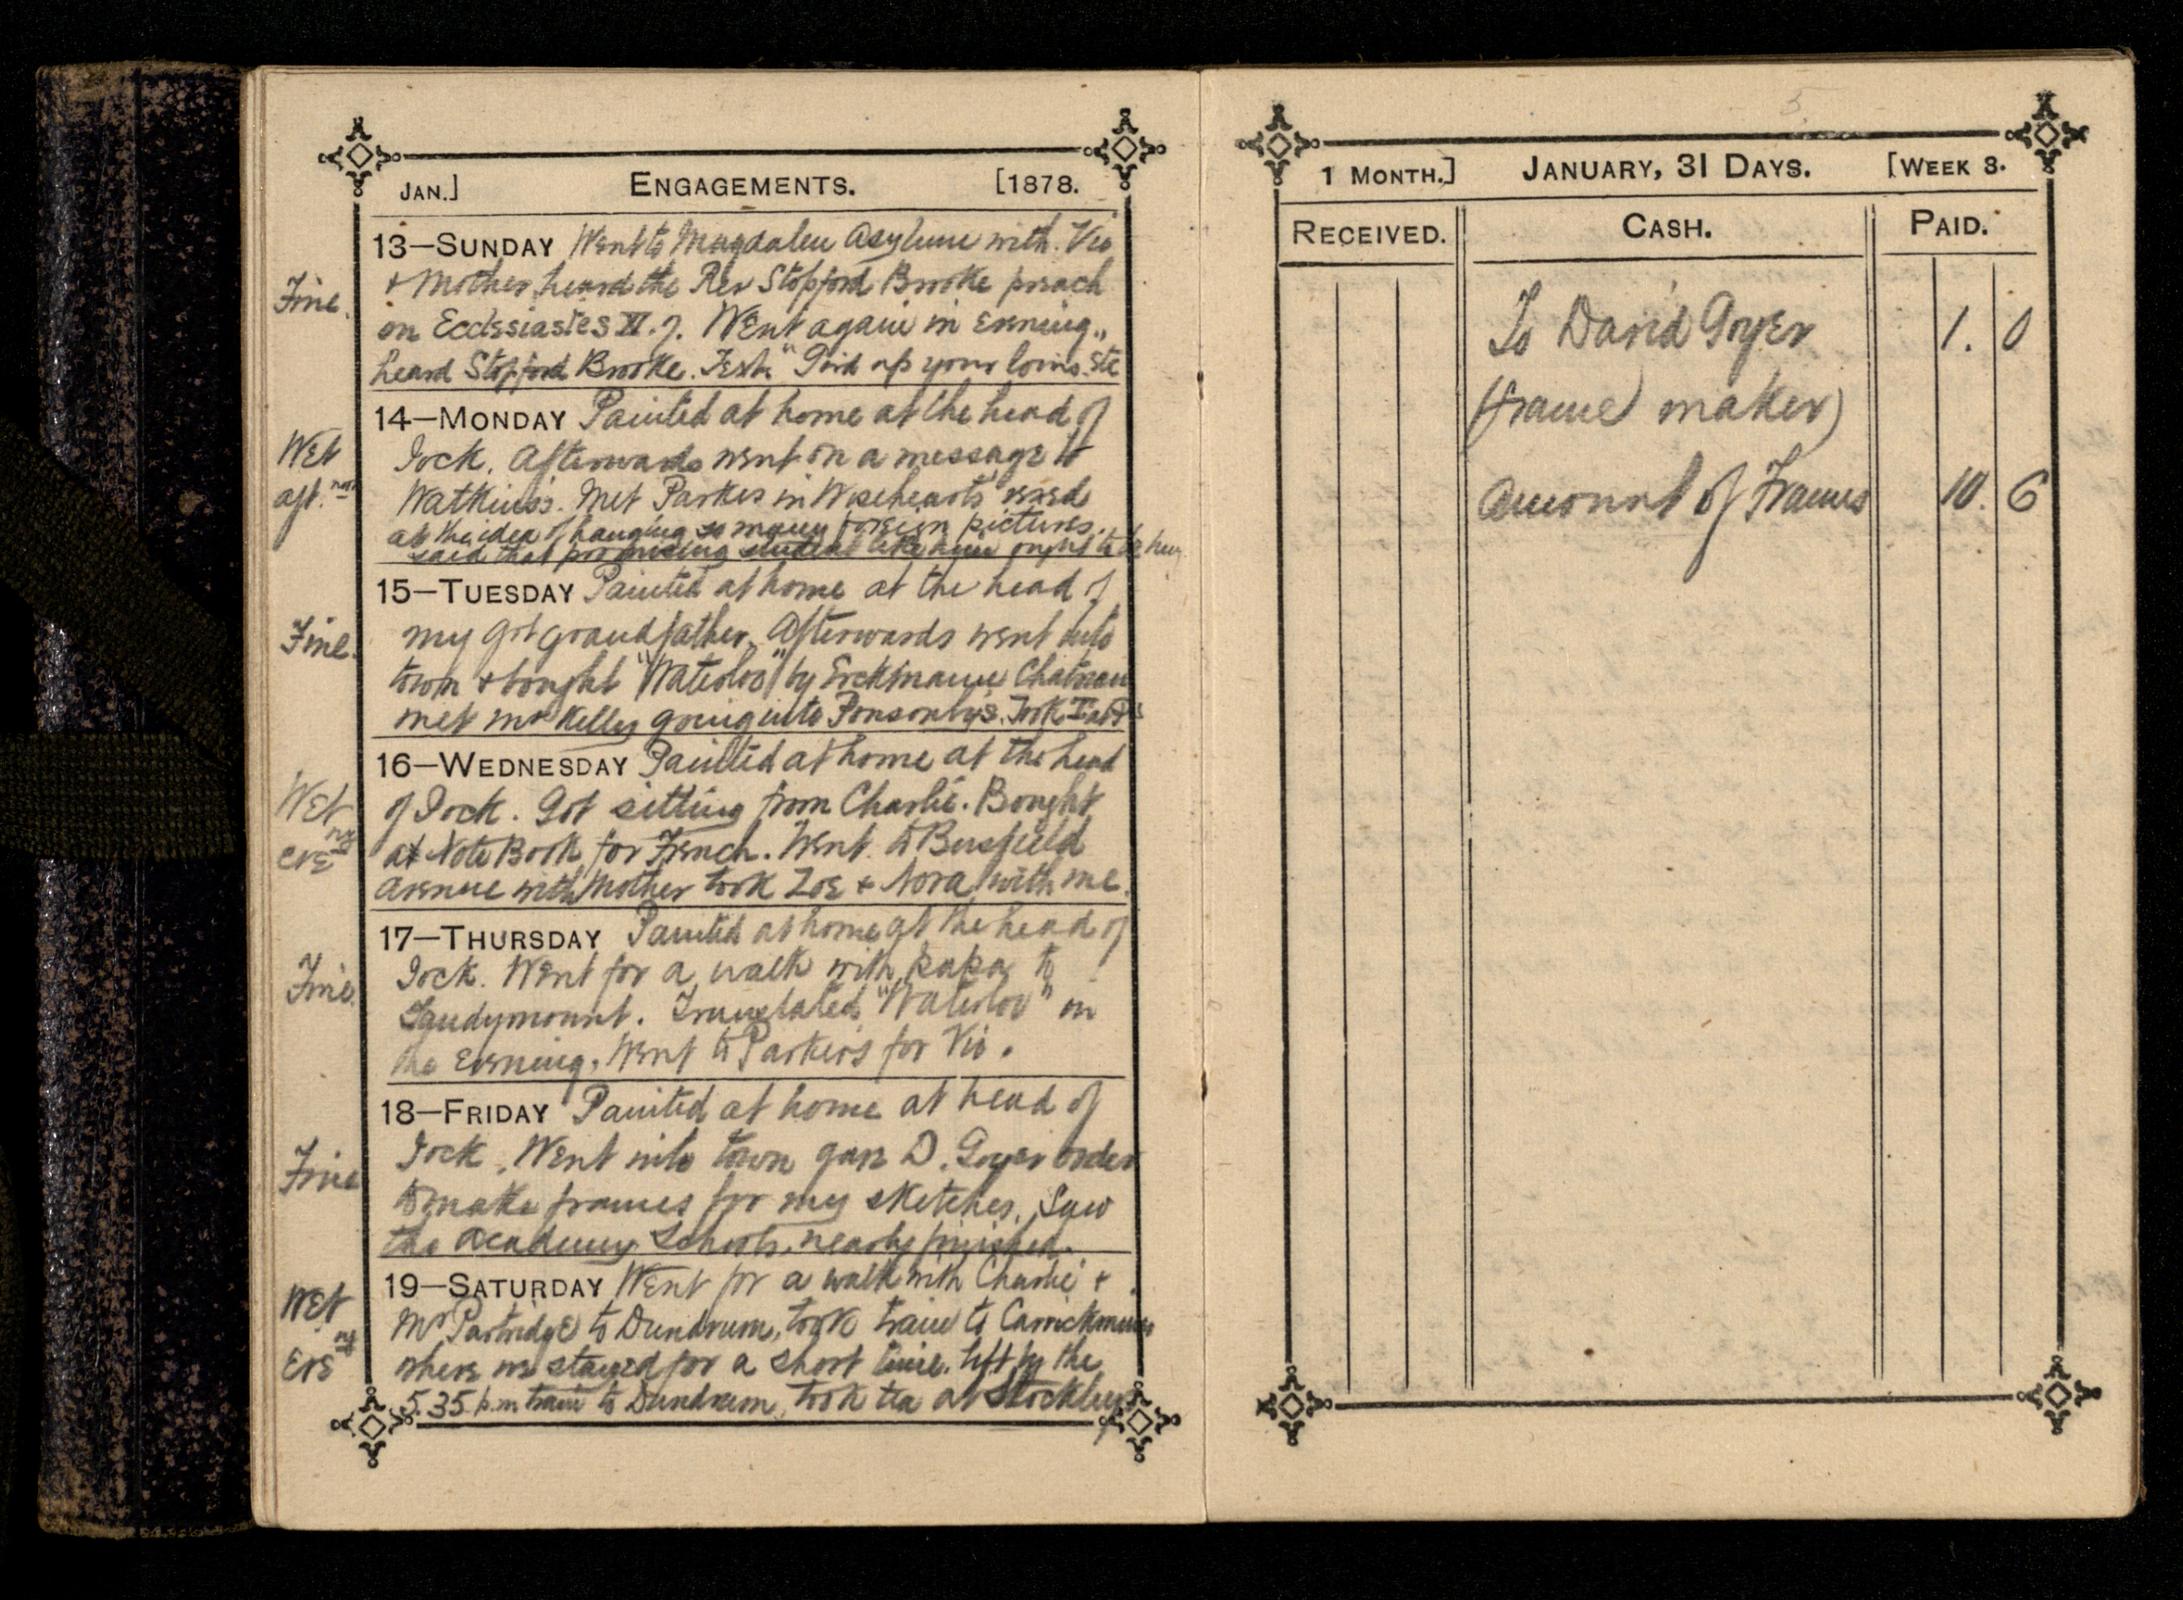 JAN.] ENGAGEMENTS. [1878.
13—SUNDAY Went to Magdalen Asylum with Vio
& Mother, heard the Rev Stopford Brooke preach
Fine.
on Ecclesiastes XI. 7. Went again in Evening.,
heard Stopford Brooke. Text "Gird up your loins. etc
14—MONDAY Painted at home at the head of
Wet
Jock. Afterwards went on a message to
aft. noon
Watkins's. Met Parkes in Wisehearts vexed
at the idea of hanging so many foreign pictures.
said that promising student like him ought to be hung
15—TUESDAY Painted at home at the head of
Fine.
my Gt grandfather. Afterwards went into
town & bought "Waterloo" by Erckmann Chatrian
met Mr Kelly going into Ponsonby's. Took
16—WEDNESDAY Painted at home at the head
Wet
of Jock. Got sitting from Charlie. Bought
eve ng
a Note Book for French. Went to Busfield
Avenue with Mother took Zoe & Nora with me.
17—THURSDAY Painted at home at the head of
Fine.
Jock. Went for a walk with papa to
Sandymount. Translated "Waterloo" in
the Evening. Went to Parker's for Vio.
18—FRIDAY Painted at home at head of
Fine
Jock. Went into town gave D. Goyer order
to make frames for my sketches. Saw
the Academy Schools, nearly finished.
19—SATURDAY Went for a walk with Charlie &
Wet
Mr Partridge to Dundrum, took train to Carrickmines
Eve ng
where we stayed for a short time. left by the
5.35 p.m train to Dundrum, took tea at Stockleys
5
1 MONTH.] JANUARY, 31 DAYS. [WEEK 3.
RECEIVED. CASH. PAID.
To David Goyer 1. 0
(frame maker)
Amount of Frames 10. 6